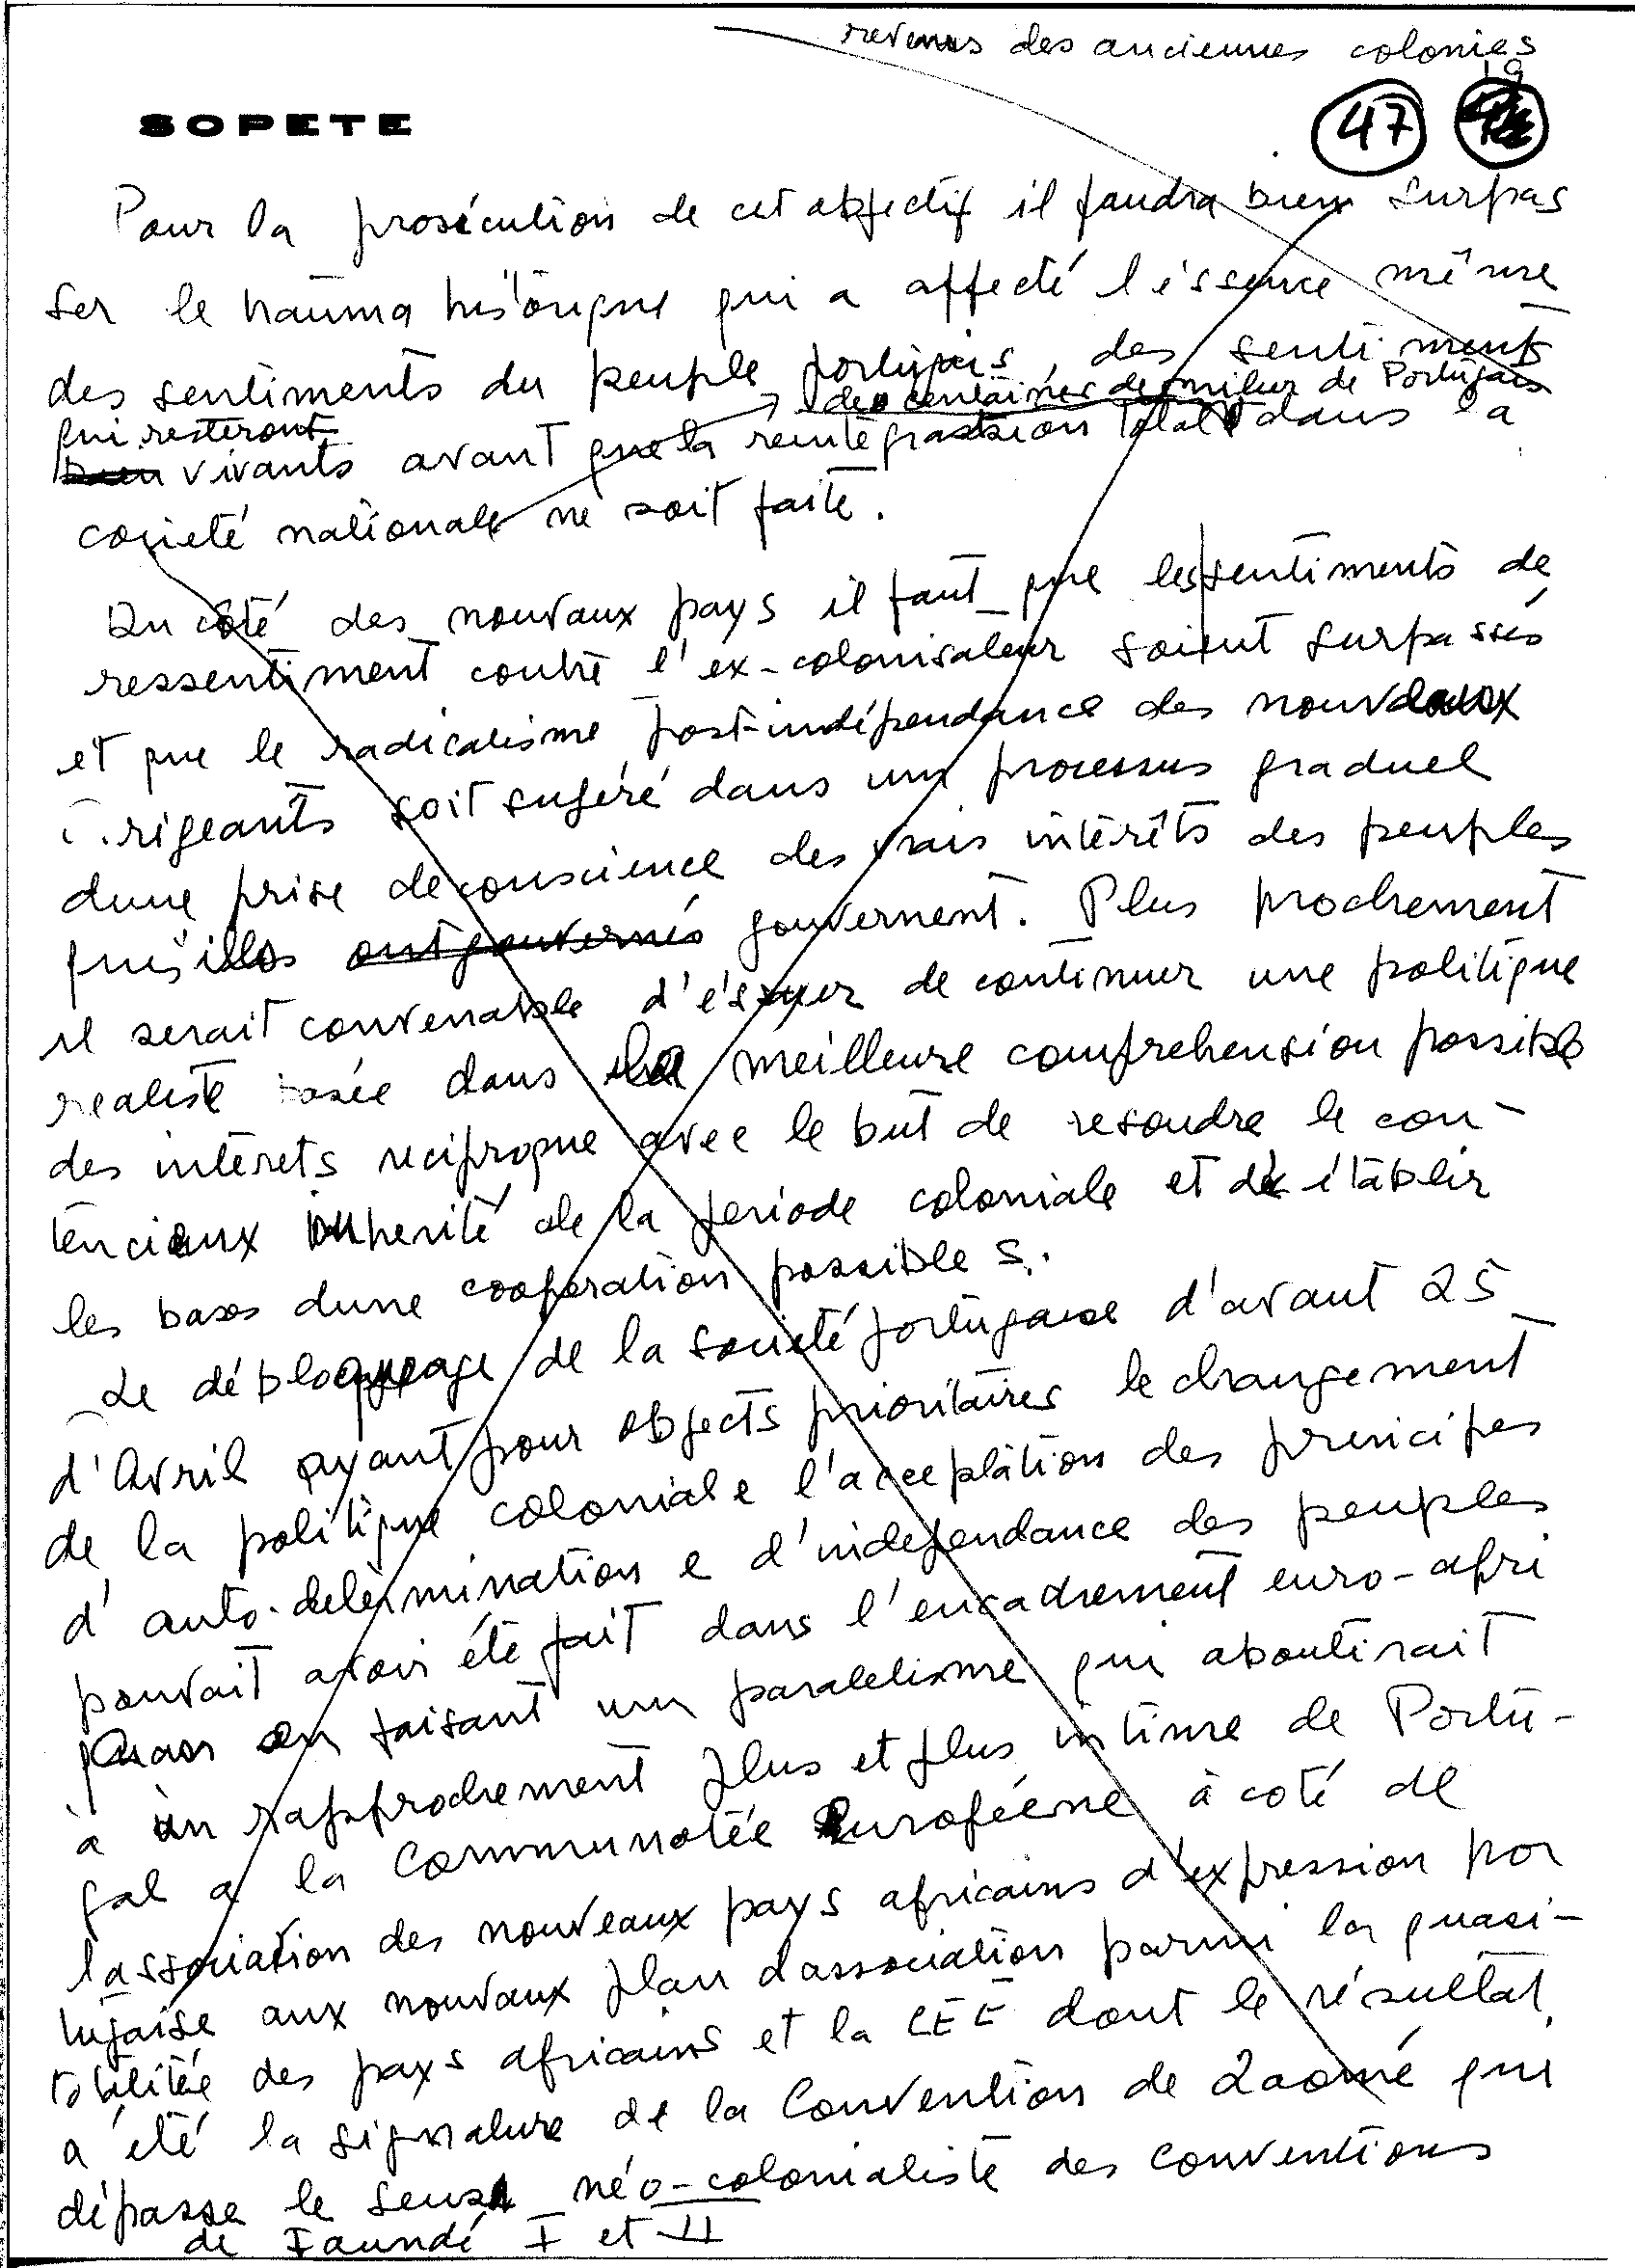 revenus des anciennes colonies
19
SOPETE
47
Pour la prosécution de cet objectif il faudra bien surpas
ser le trauma historique qui a affecté l'éssence même
des sentiments du peuple portugais, des sentiments
des centaines de milier de Portugais
qui resteront
vivants avant que la reintegration total dans la
societé nationale ne soit faite.
Du côté des nouvaux pays il faut que les sentiments de
ressentiment contre l'ex-colonisateur soient surpassés
et que le radicalisme post-indépendance des nouveaux
dirigeants soit sugéré dans un processus graduel
dune prise de conscience des vrais intérêts des peuples
qu'ils ont gouvernés gouvernent. Plus prochement
il serait convenable d'éssayer de continuer une politique
realiste basée dans la meilleure comprehension possible
des intérets reciproque avec le but de resoudre le con-
tencieux inherité de la periode coloniale et de établir
les bases dune cooperation possible s.
Le débloquage de la societé portugaise d'avant 25
d'Avril ayant pour objects prioritaires le changement
de la politique coloniale l'acceptation des principes
d'auto-determination e d'independance des peuples
pouvait avoir été fait dans l'encadrement euro-afri
en faisant un paralelisme qui aboutirait
à un rapprochement plus et plus intime de Portu-
gal a la Communotée Européene à coté de
l'association des nouveaux pays africains d'expression por
tugaise aux nouvaux plan d'association parmi la quasi-
totalitée des pays africains et la CEE dont le résultat
a été la signature de la Convention de Laomé qui
dépasse le sens néo-colonialiste des conventions
de Iaundé I et II